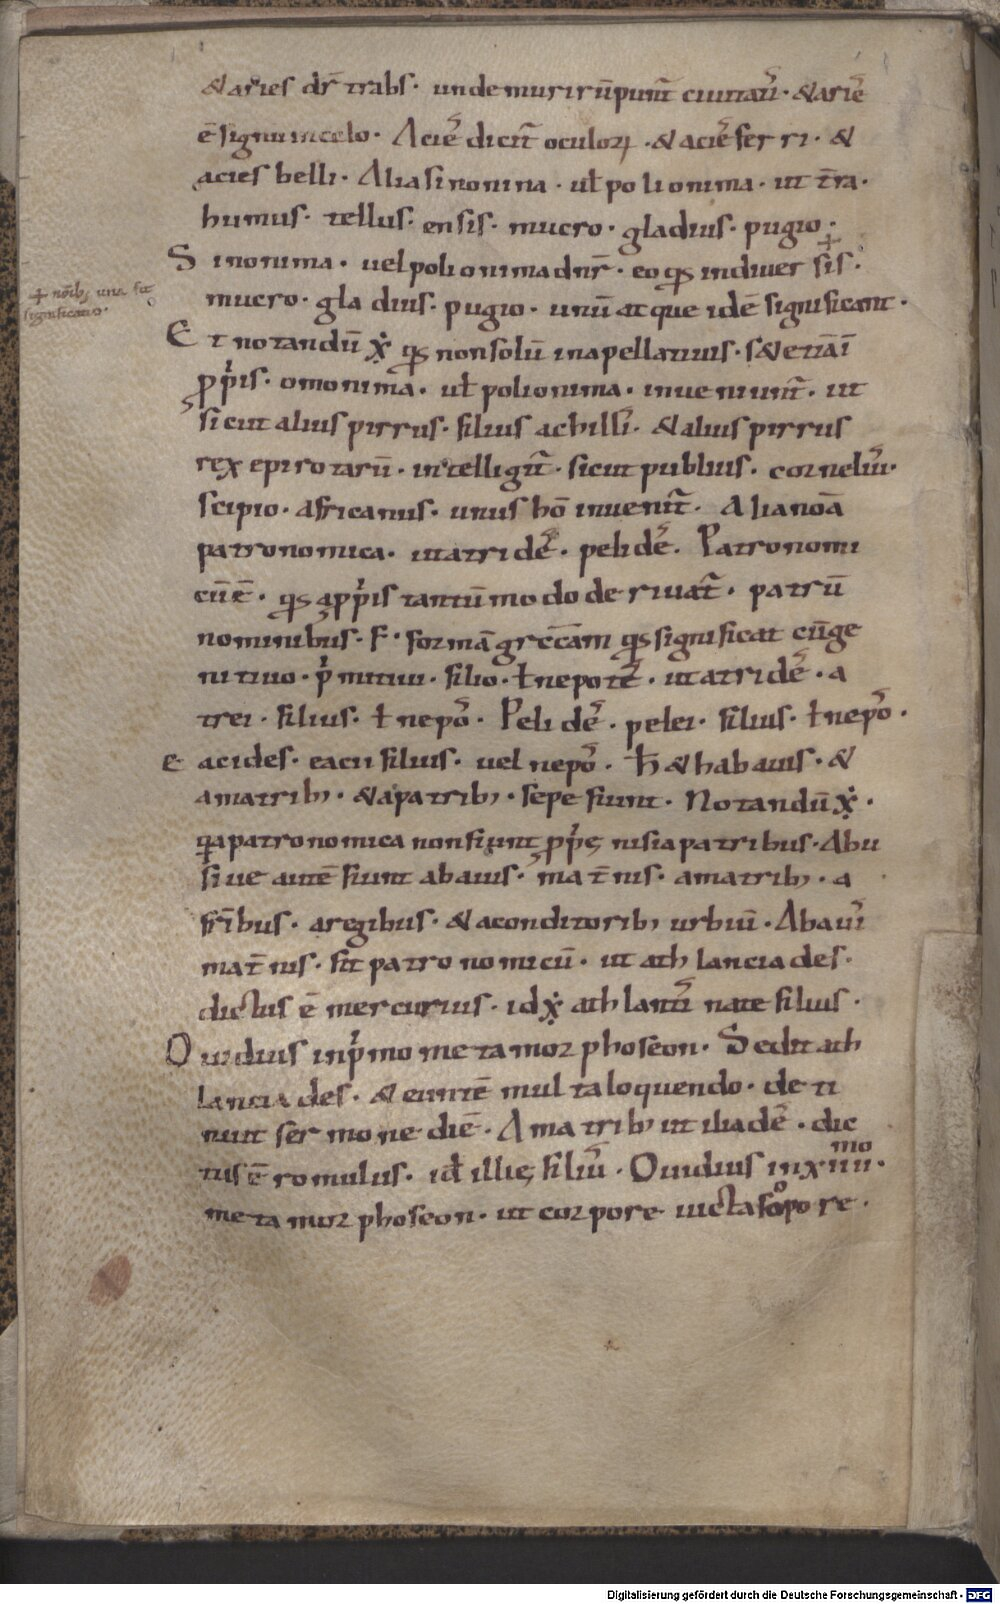 & aries dr̄ trabs· unde muri rūpunt̄ ciuitatū· & ariēs
ē signū in celo· Aciēs dicit̄ oculoꝝ· & aciēs ferri· &
acies belli· Alia sinonima· ul̄ polionima· ut t̄ra·
humus· tellus· ensis· mucro· gladius· pugio·
Sinonima· uel polionima dn̄r· eo qd̄ indiuersis·
+ noīb; una fit
significatio·
mucro· gladius· pugio· unū atque idē significant·
Et notandū qd̄ non solū in apellatiuis· s& etiā ī
ꝓpriis· omonima· ul̄ polionima· inueniunt̄· ut
sicut alius pirrus· filius achillis· & alius pirrus
rex epirotarū· intelligit̄· sicut publius· cornelius·
scipio· africanus· unus hō inuenit̄· Alia noā
patronomica· ut atridēs· pelidēs· Patronomi
cū ē· qd̄ a ꝓpriis tantūmodo deriuat̄· patrū
nominibus· s· formā grecam qd̄ significat cū ge
nitiuo· primitiui· filiū· ł nepotē· ut atridēs· a
trei· filius· ł nepos· Pelidēs· pelei· filius· ł nepos·
eacides· eacii filius· uel nepos· h̄ & hab auis· &
a matrib;· & a patrib;· sepe fiunt· Notandū·
qa patronomica non fiunt ꝓprie nisi a patribus· Abu
siue autē fiunt ab auis· mat̄nis· a matrib;· a
fr̄ibus· a regibus· & a conditorib; urbiū· Ab auis
mat̄nis· fit patronomicū· ut athlanciades·
dictus ē mercurius· id athlantis nate filius·
Ouidius in primo metamorphoseon· Sedit ath
lanciades· & euntē multa loquendo· deti
nuit sermone diē· A matrib; ut iliadēs· dic
tus ē romulus· id illie filius· Ouidius in xiiii mo·
metamorphoseon· ut corpore uicta sopore·
Digitalisierung gefördert durch die Deutsche Forschungsgemeinschaft - DFG